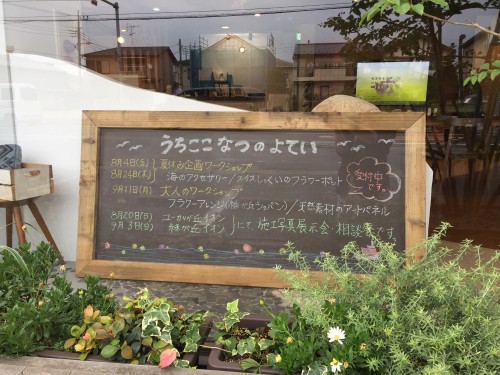 うちここ なつのよてい
8月4日(金) 夏休み企画ワークショップ
8月24日(木) 海のアクセサリー/スイスしっくいのフラワーポット
9月11日(月) 大人のワークショップ
フラワーアレンジ(柏が丘ジャパン)/天然素材のアートパネル
8月20日(日) ユーカリが丘イオン
9月3日(日) イオン にて、施工写真展示会・相談薬です
受付中です。